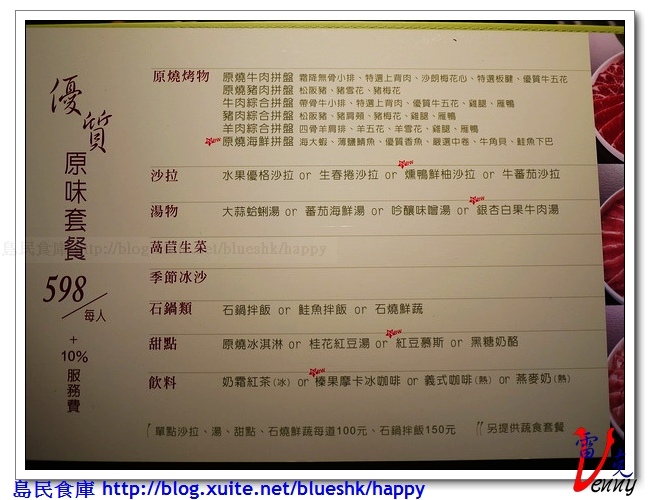 優質
原味套餐
598
每人
+
10%
服務費
原燒烤物
原燒牛肉拼盤 霜降無骨小排、特選上背肉、沙朗梅花心、特選板腱、優質牛五花
原燒豬肉拼盤 松阪豬、豬雪花、豬梅花
牛肉綜合拼盤 帶骨牛小排、特選上背肉、優質牛五花、雞腿、雁鴨
豬肉綜合拼盤 松阪豬、豬肩頰、豬梅花、雞腿、雁鴨
羊肉綜合拼盤 四骨羊肩排、羊五花、羊雪花、雞腿、雁鴨
New 原燒海鮮拼盤 海大蝦、薄鹽鯖魚、優質香魚、嚴選中卷、牛角貝、鮭魚下巴
沙拉 水果優格沙拉 or 生春捲沙拉 or New 燻鴨鮮柚沙拉 or 牛蕃茄沙拉
湯物 大蒜蛤蜊湯 or 蕃茄海鮮湯 or 吟釀味噌湯 or New 銀杏白果牛肉湯
萵苣生菜
季節冰沙
石鍋類 石鍋拌飯 or 鮭魚拌飯 or 石燒鮮蔬
甜點 原燒冰淇淋 or 桂花紅豆湯 or New 紅豆慕斯 or 黑糖奶酪
飲料 奶霜紅茶(冰) or New 榛果摩卡冰咖啡 or 義式咖啡(熱) or 燕麥奶(熱)
單點沙拉、湯、甜點、石燒鮮蔬每道100元、石鍋拌飯150元 另提供蔬食套餐
島民食庫 http://blog.xuite.net/blueshk/happy
雷
Venny
島民食庫 http://blog.xuite.net/blueshk/happy